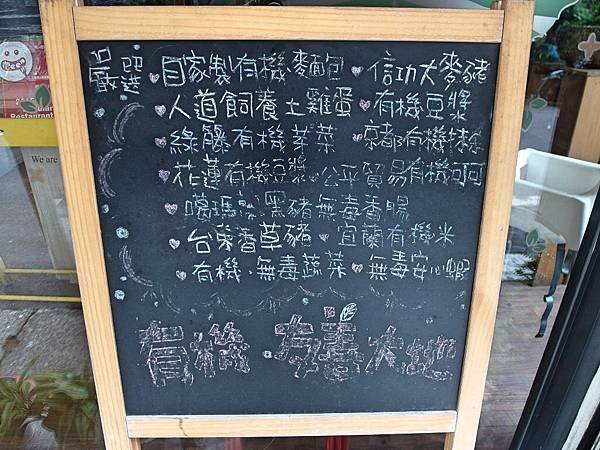 嚴選
自家製有機麵包 信功大麥豬
人道飼養土雞蛋 有機豆漿
綠藤有機芽菜 京都有機抹茶
花蓮有機豆漿 公平貿易有機可可
噶瑪蘭黑豬無毒香腸
台東香草豬 宜蘭有機米
有機.無毒蔬菜 無毒安心蝦
有機.友善大地
We are
Restaurant